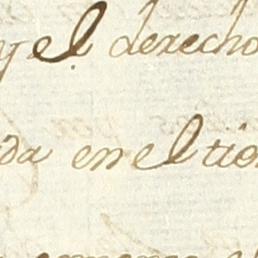 y el derecho
da en el tie